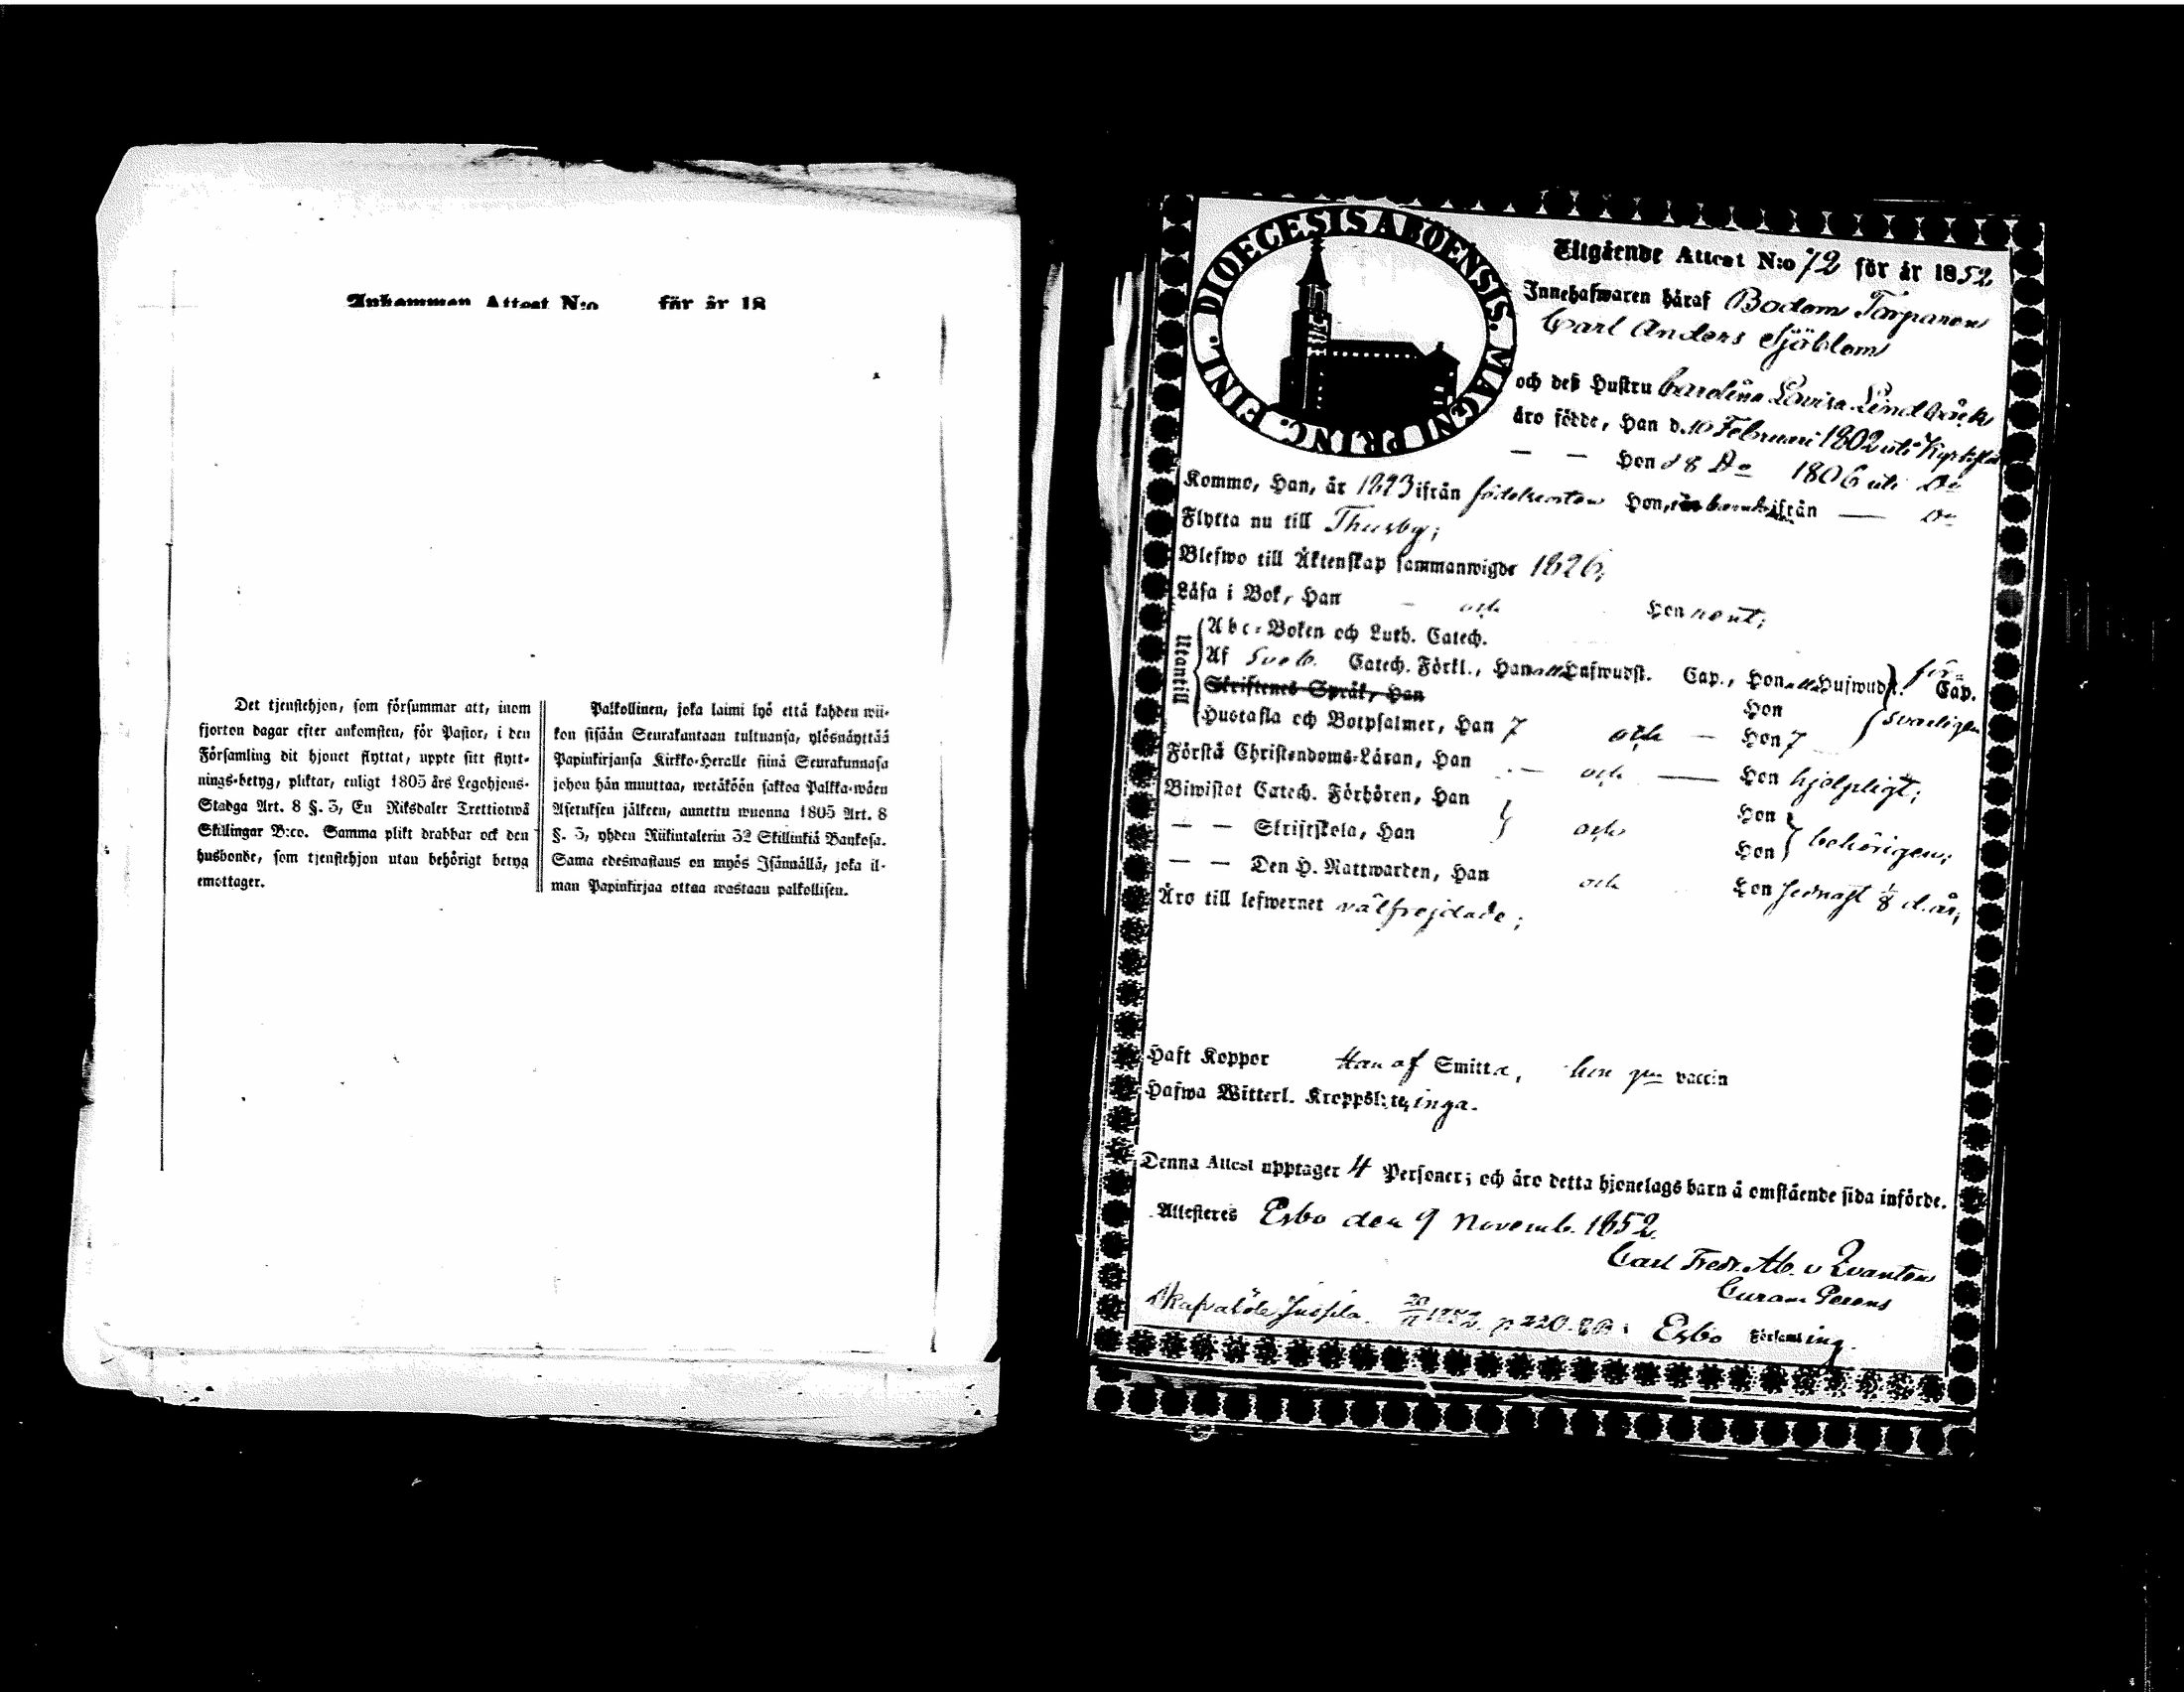 Ankommen Attest N:o för år 18
Det tjenstehjon, som försummar att, inom
fjorton dagar efter ankomsten, för Pastor, i den
Församling dit hjonet flyttat, uppte sitt flytt-
nings-betyg, pliktar, enligt 1805 års Legohjons-
Stadga Art. 8 §. 3, En Riksdaler Trettiotwå
Skillingar B:co. Samma plikt drabbar ock den
husbonde, som tjenstehjon utan behörigt betyg
emottager.
Palkollinen, joka laimi lyö että kahden wii-
kon sisään Seurakuntaan tultuansa, ylösnäyttää
Papinkirjansa Kirkko-Heralle siinä Seurakunnasa
johon hän muuttaa, wetäköön sakkoa Palkka-wäen
Asetuksen jälkeen, annettu wuonna 1805 Art. 8
§. 3, yhden Riikintalerin 32 Skillinkiä Bankosa.
Sama edeswastaus on myös Isännällä, joka il-
man Papinkirjaa ottaa wastaan palkollisen.
DIOECESIS ABOENSIS. MAGNI PRINC. FINL.
Utgående Attest N:o 72 för år 1852
Innehafwaren häraf Bodom Torparen
Carl Anders Sjöblom
och deß Hustru Carolina Lovisa Lindbrÿck
äro födde, Han d. 10 Februari 1802 uti
— — Hon d 8 Do 1806 uti Do
Kommo, Han, år 1823 ifrån födelseorten Hon, ifrån — Do
Flytta nu till Thusby;
Blefwo till Äktenskap sammanwigde 1826;
Läsa i Bok, Han — och Hon rent;
Utantill
Abc-Boken och Luth. Catech.
Af Sveb. Catech. Förkl., Han all Hufwudst. Cap., Hon all Hufwudst. Cap.
Skriftenes Språk, Han Hon
för-
svarligen
Hustafla och Botpsalmer, Han 7 och — Hon 7
Förstå Christendoms-Läran, Han — och — Hon hjelpligt;
Biwistat Catech. Förhören, Han Hon
— — Skriftskola, Han och Hon behörigen;
— — Den H. Nattwarden, Han och Hon sednast d. år;
Äro till lefwernet välfrejdade;
Haft Koppor Han af Smitta, hon gm vaccin
Hafwa Witterl. Kroppslyte inga.
Denna Attest upptager 4 Personer; och äro detta hjonelags barn å omstående sida införde.
Attesteres Esbo den 9 Novemb. 1852.
Carl Fredr. Alb. v Qvanten
Curam Gerens
1852. p 220. Esbo Församling.